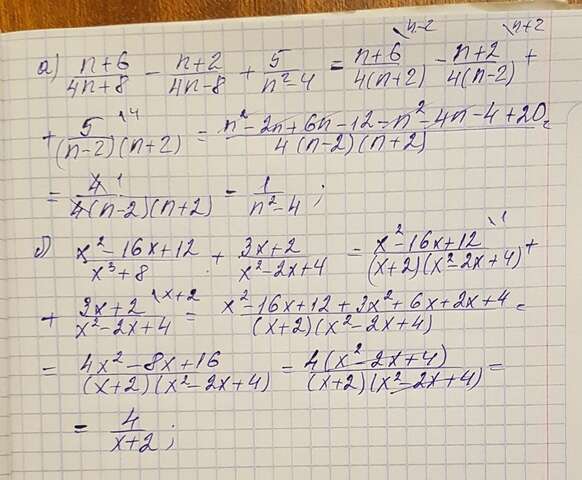 а) (n+6)/(4n+8) − (n+2)/(4n−8) + 5/(n²−4) = (n+6)/(4(n+2)) \n−2 − (n+2)/(4(n−2)) \n+2 +
+ 5/((n−2)(n+2)) \4 = (n²−2n+6n−12−n²−4n−4+20)/(4(n−2)(n+2)) =
= 4 1/(4(n−2)(n+2)) = 1/(n²−4) ;
б) (x²−16x+12)/(x³+8) + (3x+2)/(x²−2x+4) = (x²−16x+12)/((x+2)(x²−2x+4)) \1 +
+ (3x+2)/(x²−2x+4) \x+2 = (x²−16x+12+3x²+6x+2x+4)/((x+2)(x²−2x+4)) =
= (4x²−8x+16)/((x+2)(x²−2x+4)) = (4(x²−2x+4))/((x+2)(x²−2x+4)) =
= 4/(x+2) ;